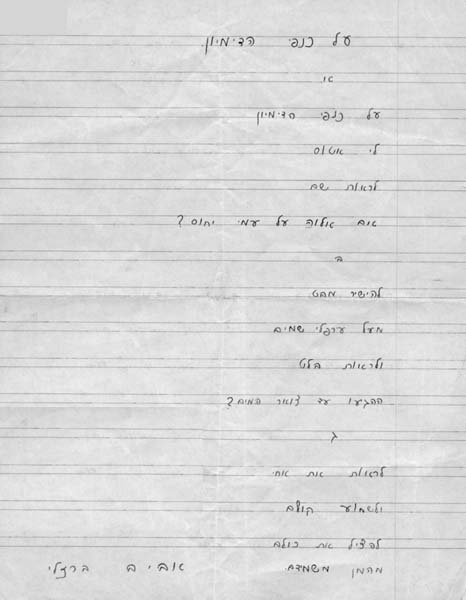 על כנפי הדימיון.
א.
על כנפי הדימיון
לי אטוס
לראות שם
אם אלוה על עמי יחוס?
ב
להישיר מבט
מעל ערפלי שמים
ולראות בלט
ההגיעו עד צואר המים?
ג
לראות את אחי
ולשמוע קולם
להציל את כולם
מהמן משמידם. אביב ברזלי